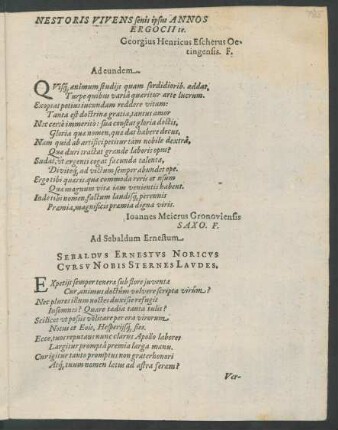 NESTORIS VIVENS senis ipsos ANNOS
ERGOCII
Georgius Henricus Escherus Oe-
tingensis. F.
Ad eundem.
QVisq; animum studijs quam sordidiorib. addat,
Turpe quibus variâ quæritur arte lucrum.
Exoptat potius iucundam reddere vitam:
Tanta est doctrinæ gratia, tantus amor
Nec certè immeritò: sua constat gloria doctis,
Gloria quæ nomen, quæ dat habere decus,
Nam quid ab artifici petitur tàm nobile dextrâ,
Quo duri tractat grande laboris opus?
Sudat, vt argenti cogat facunda talenta,
Divitijs, ad victum semper abundet ope.
Ergo tibi quæris quæ commoda reris et vsum
Quæ magnum vitæ iam venientis habent.
Inde tuum nomen factum laudisq; perennis
Præmia, magnificis præmia digna viris.
Ioannes Meierus Gronoviensis
SAXO. F.
Ad Sebaldum Ernestum
SEBALDVS ERNESTVS NORICVS
CVRSV NOBIS STERNES LAVDES.
EXpetijt semper tenera sub flore juventa
Cur, animus doctûm volvere scripta virûm?
Nec plures illum noctes duxisse refugit
Insomnes? Quare tædia tanta tulit?
Scilicet ut possis volitare per ora virorum
Notus et Eois, Hesperijsq; sies.
Ecce, tuus reputans nunc clarus Apollo labores
Largitur promptâ præmia larga manu.
Cur igitur tanto promptus non grater honori
Atq; tuum nomen lætus ad astra feram?
Ver-